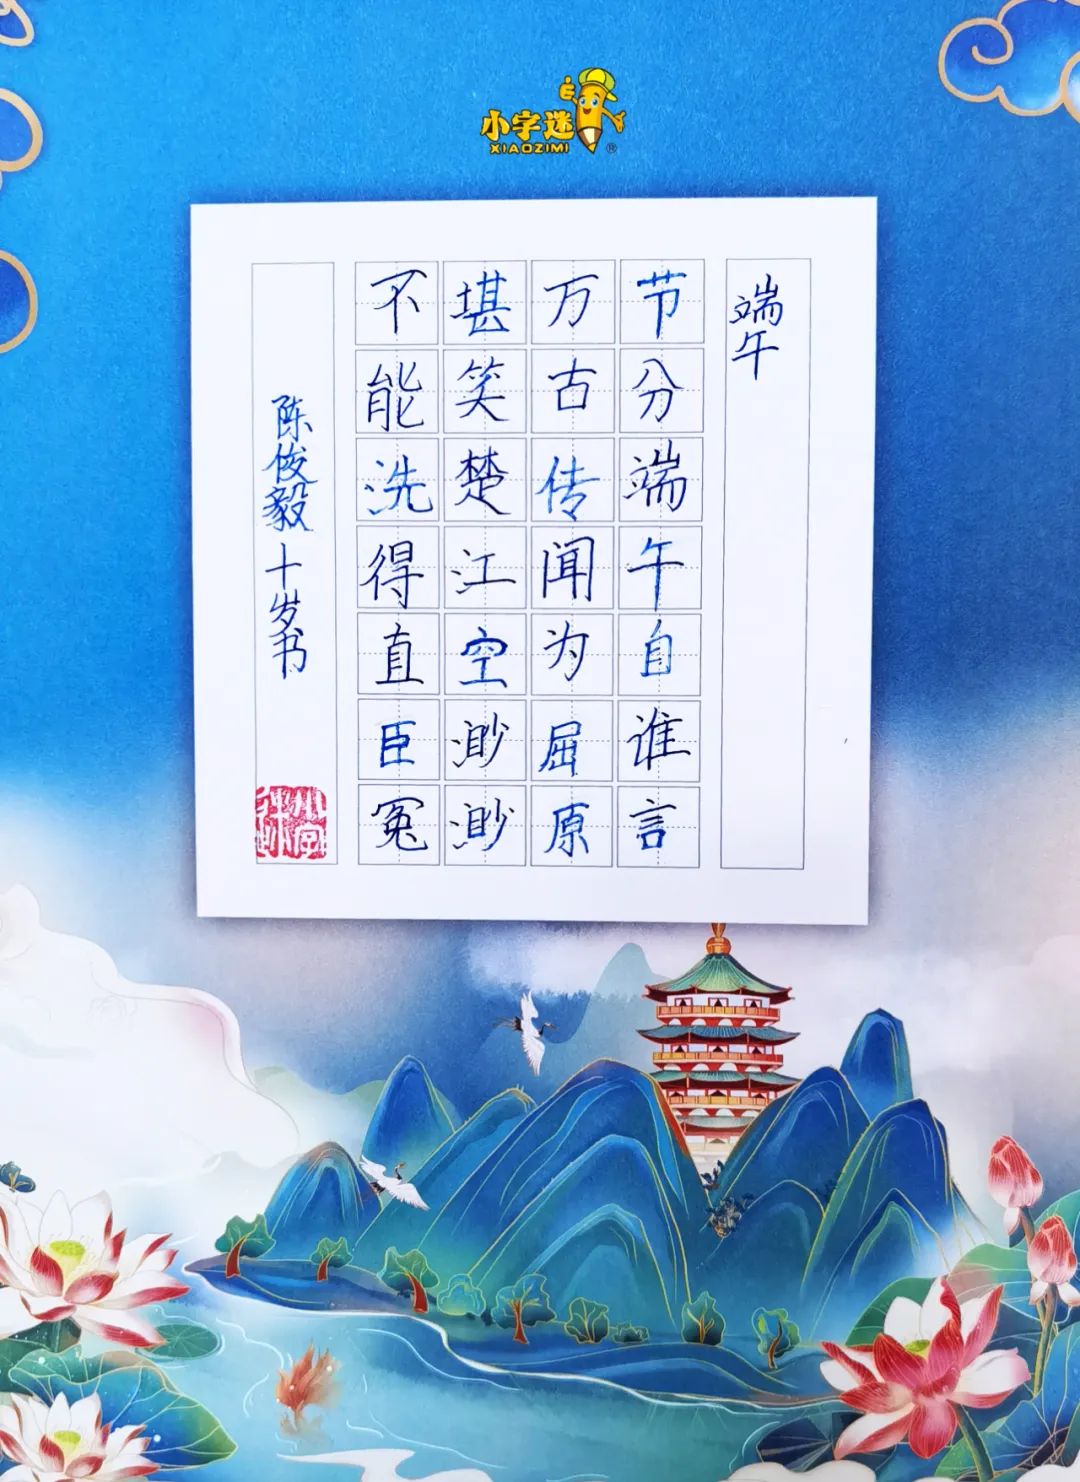 小字迷
XIAOZIMI
®
端午
节分端午自谁言
万古传闻为屈原
堪笑楚江空渺渺
不能洗得直臣冤
陈俊毅十岁书
小字迷